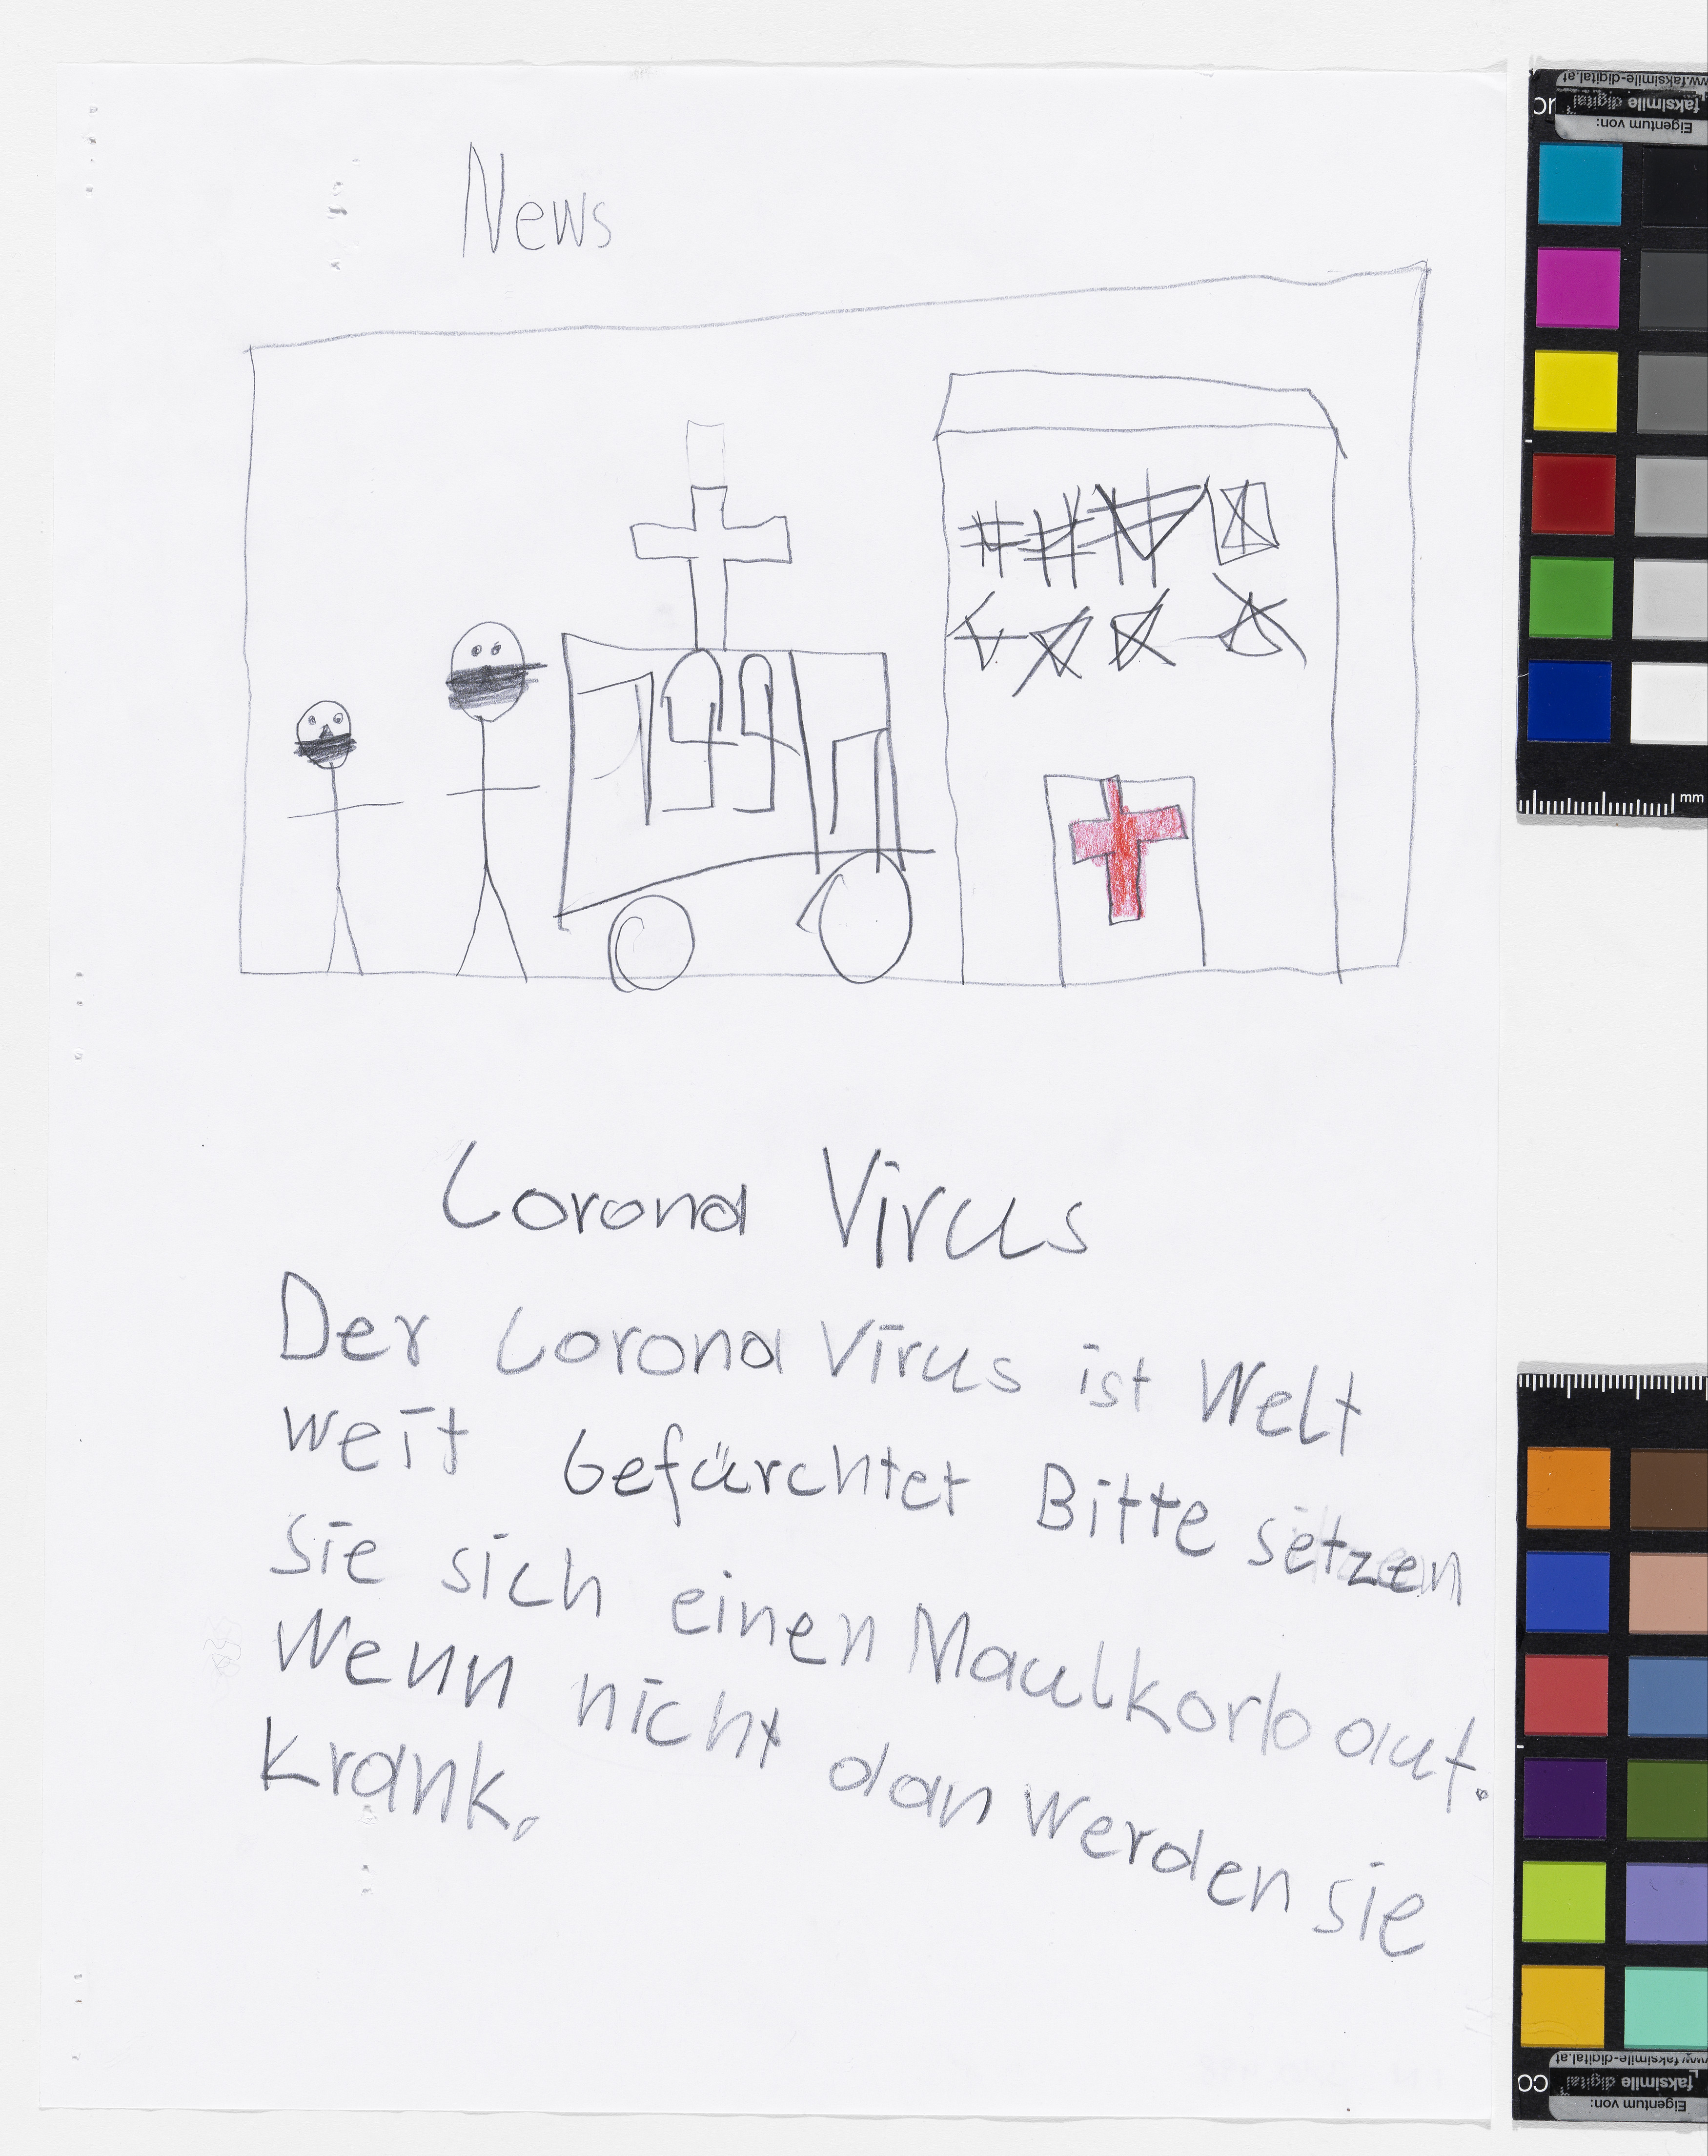 News
Corona Virus
Der Corona Virus ist Welt
weit Gefürchtet Bitte setzen
sie sich einen Maulkorb auf.
Wenn nicht dan werden sie
krank.
Eigentum von:
faksimile digital
www.faksimile-digital.at
mm
Eigentum von:
faksimile digital
www.faksimile-digital.at